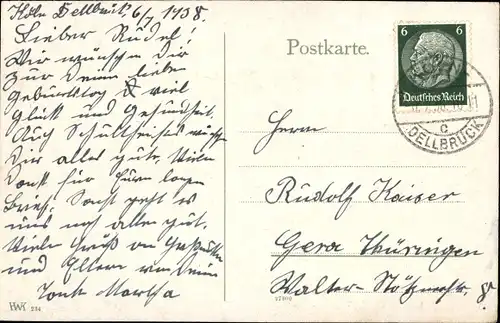 Köln Dellbrück, 6/7 1938.
Lieber Rudel!
Wir wünschen Dir
zur Deinen lieben
Geburtstag viel
Glück und Gesundheit.
Auch Schultheises wünschen
Dir alles gute. Vielen
Dank für Euren langen
Brief. Sonst geht es
uns noch alle gut.
Viele Grüße an
und Eltern von Deine
Tante Martha
HWK 234
Postkarte.
6 6
Deutsches Reich
c
DELLBRÜCK
Herrn
Rudolf Kaiser
Gera Thüringen
Walter-